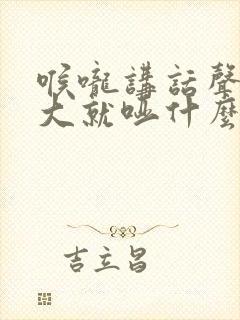 喉嚨講話聲
大就哑什麼
吉立昌